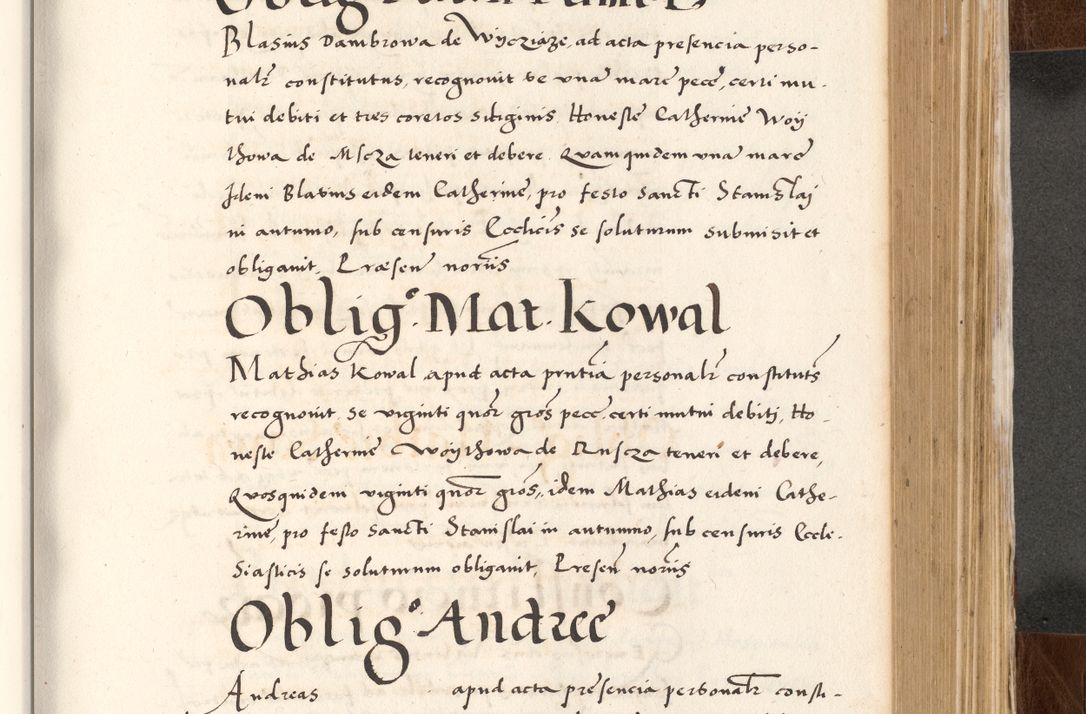 Blasius Dambrowa de Wycziąze, ad acta presencia perso-
nalr constitutus, recognovit se una marc pecc, certi mu-
tui debiti et tres coretos siliginis Honeste Catherine Woy
thowa de Mscza teneri et debere. Quam quidem una marc
Idem Blasius eidem Catherine, pro festo sancti Stanislai
in autumo, sub censuris Ecclicis se soluturum submisit et
obligavit, Præsen noriis
Oblig.º Mat. Kowal
Mathias Kowal apud acta prntia personalr constituts
recognovit, se viginti quor gros pecc, certi mutui debiti, Ho-
neste Catherine Woythowa de Ruscza teneri et debere,
Quos quidem viginti quor gros, idem Mathias eidem Cathe-
rine, pro festo sancti Stanislai in autumno, sub censuris Eccle-
siasticis se soluturum obligavit, Presen noriis
Oblig.º Andree
Andreas apud acta presencia personalr consti-